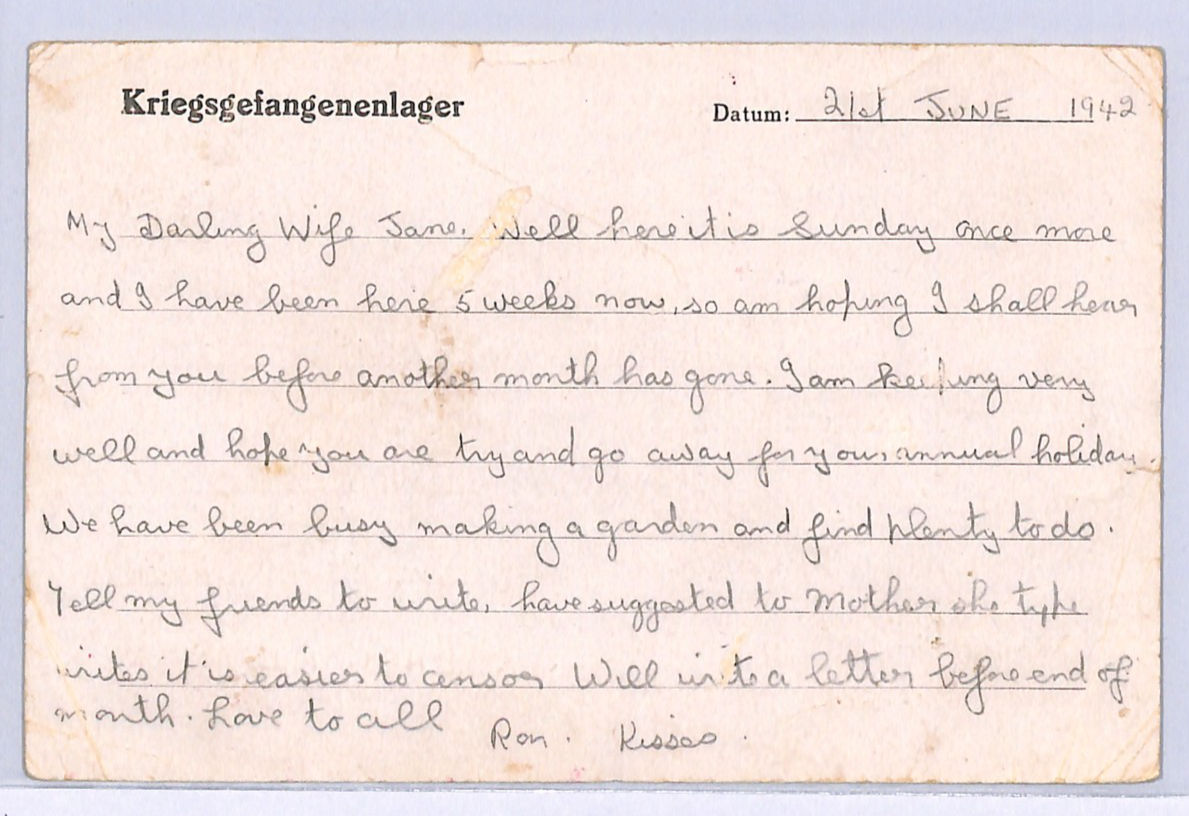 Kriegsgefangenenlager Datum: 21st JUNE 1942
My Darling Wife Jane. Well here it is Sunday once more
and I have been here 5 weeks now, so am hoping I shall hear
from you before another month has gone. I am keeping very
well and hope you are try and go away for your annual holiday.
We have been busy making a garden and find plenty to do.
Tell my friends to write, have suggested to Mother she type
writes it is easier to censor Will write a letter before end of
month. Love to all
Ron. Kisses.